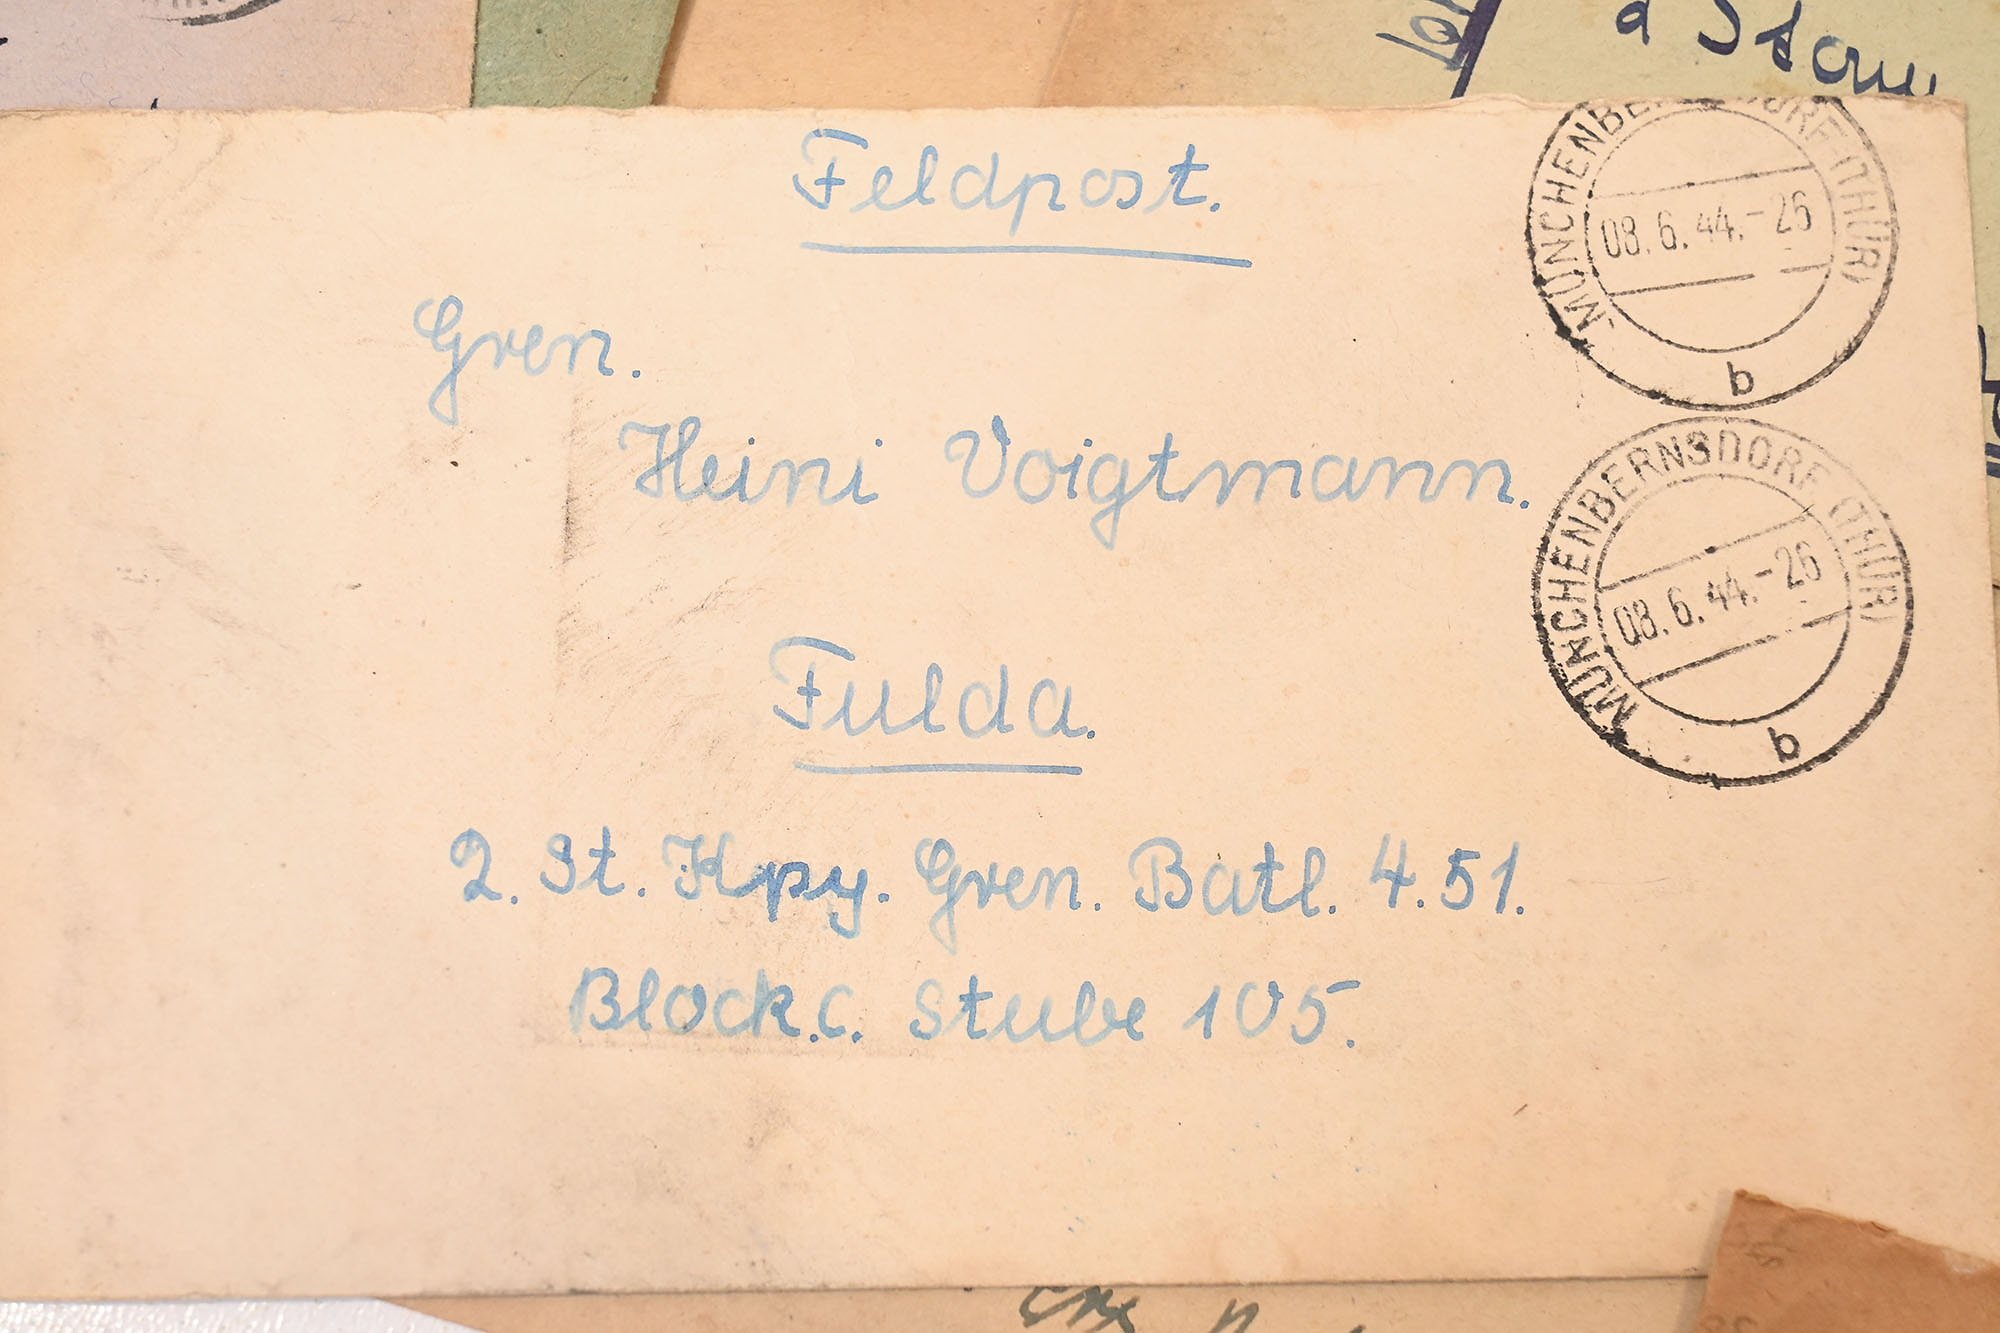 Feldpost.
Gren.
Heini Voigtmann.
Fulda.
2. St. Kpy. Gren. Batl. 4.51.
Block.C. Stube 105.
MÜNCHENBERNSDORF (THÜR)
08.6.44.-26
b
MÜNCHENBERNSDORF (THÜR)
08.6.44.-26
b